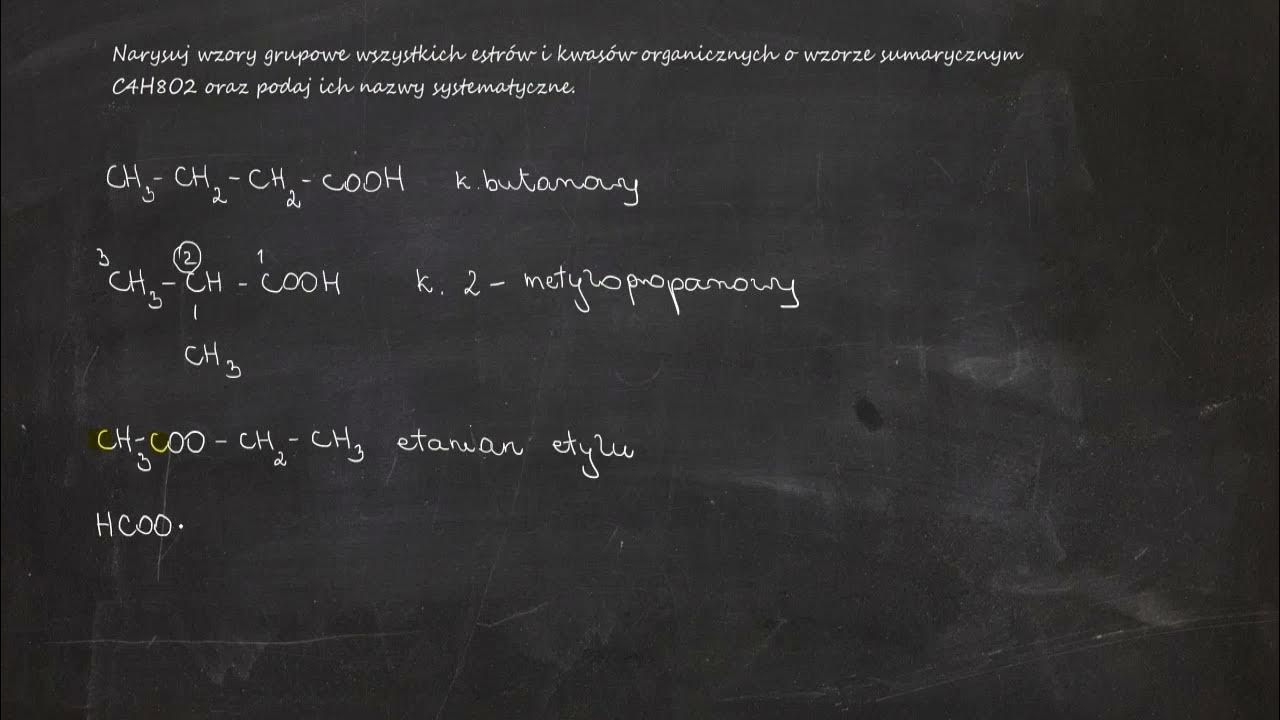 Narysuj wzory grupowe wszystkich estrów i kwasów organicznych o wzorze sumarycznym
C4H8O2 oraz podaj ich nazwy systematyczne.
CH3-CH2-CH2-COOH k.butanowy
3 2 1
CH3-CH-COOH k. 2-metylopropanowy
CH3
CH3-COO-CH2-CH3 etanian etylu
HCOO